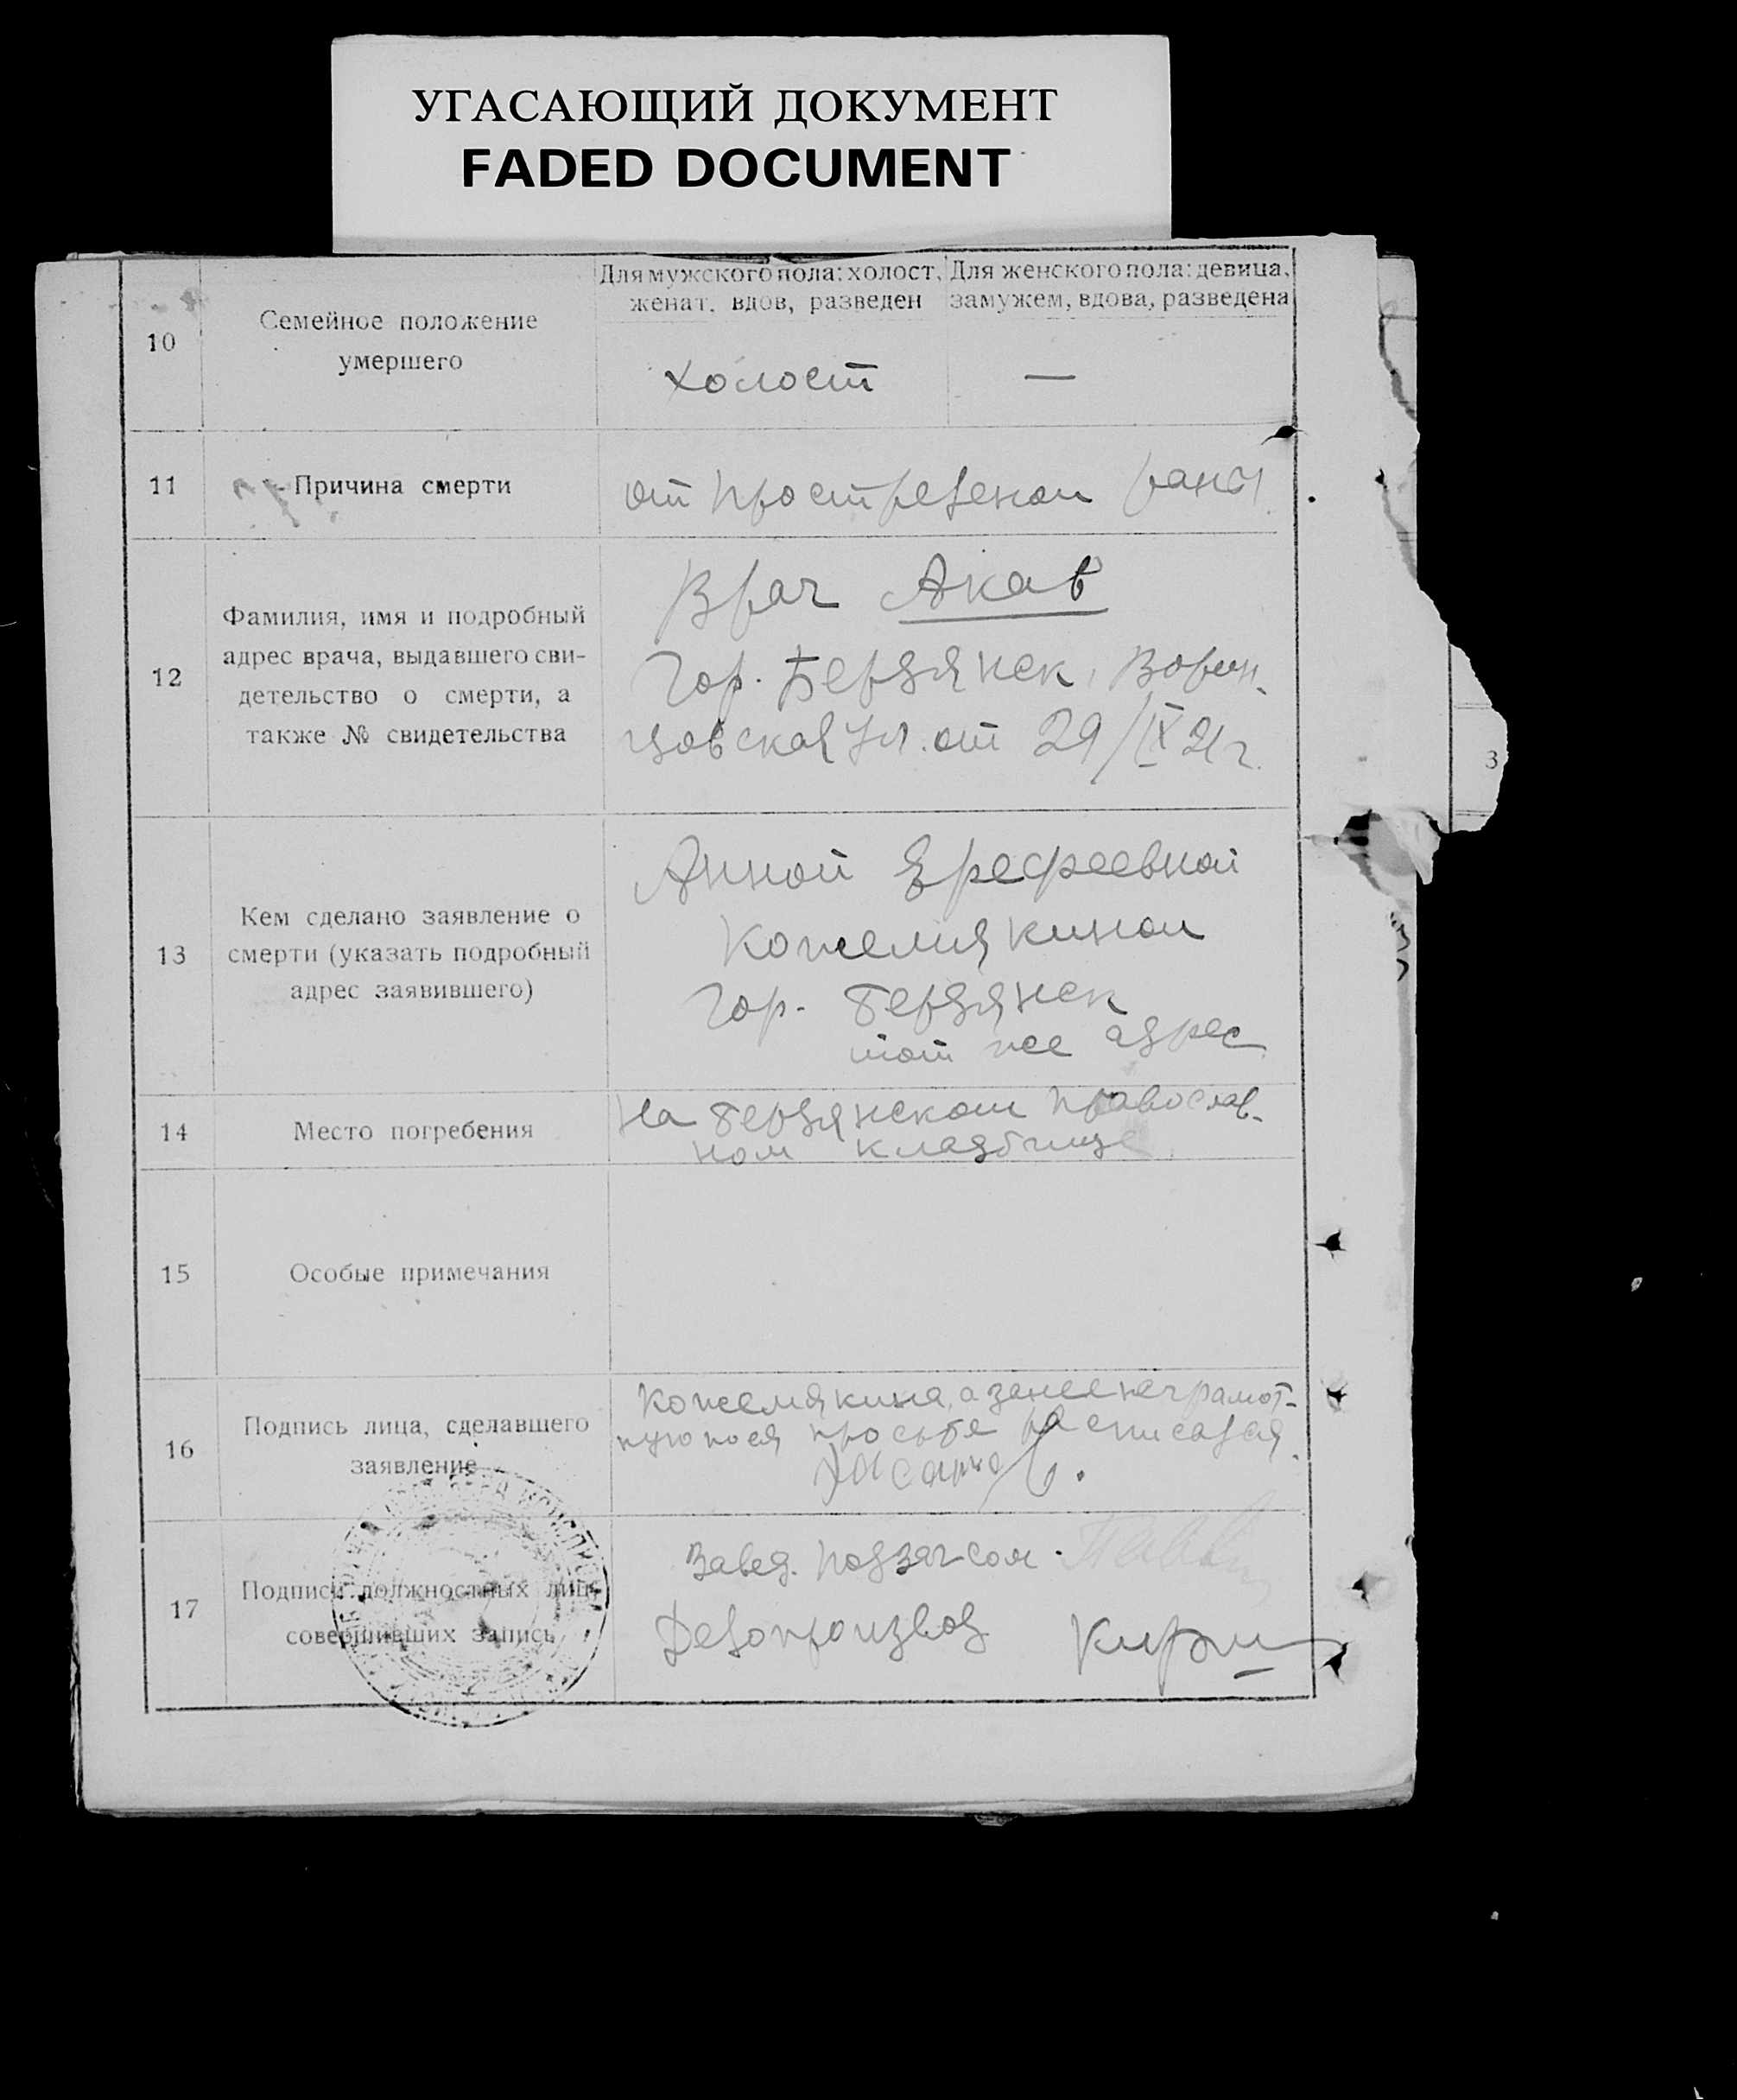 УГАСАЮЩИЙ ДОКУМЕНТ
FADED DOCUMENT
10
Семейное положение
умершего
Для мужского пола: холост,
женат, вдов, разведен
Для женского пола: девица,
замужем, вдова, разведена
холост
—
11
Причина смерти
от прострелной раны
12
Фамилия, имя и подробный
адрес врача, выдавшего сви-
детельство о смерти, а
также № свидетельства
Врач Акав
Гор. Бердянск, Ворон-
цовская ул. от 29/IX 21 г.
3
13
Кем сделано заявление о
смерти (указать подробный
адрес заявившего)
Анной Ерефеевной
Кожемякиной
Гор. Бердянск
тот же адрес
14
Место погребения
На Бердянском православ-
ном кладбище
15
Особые примечания
16
Подпись лица, сделавшего
заявление
Кожемякина, а за нее неграмот-
ную по ея просьбе расписался
17
Подписи должностных лиц,
совершивших запись
Завед. подзагсом
Делопроизвод